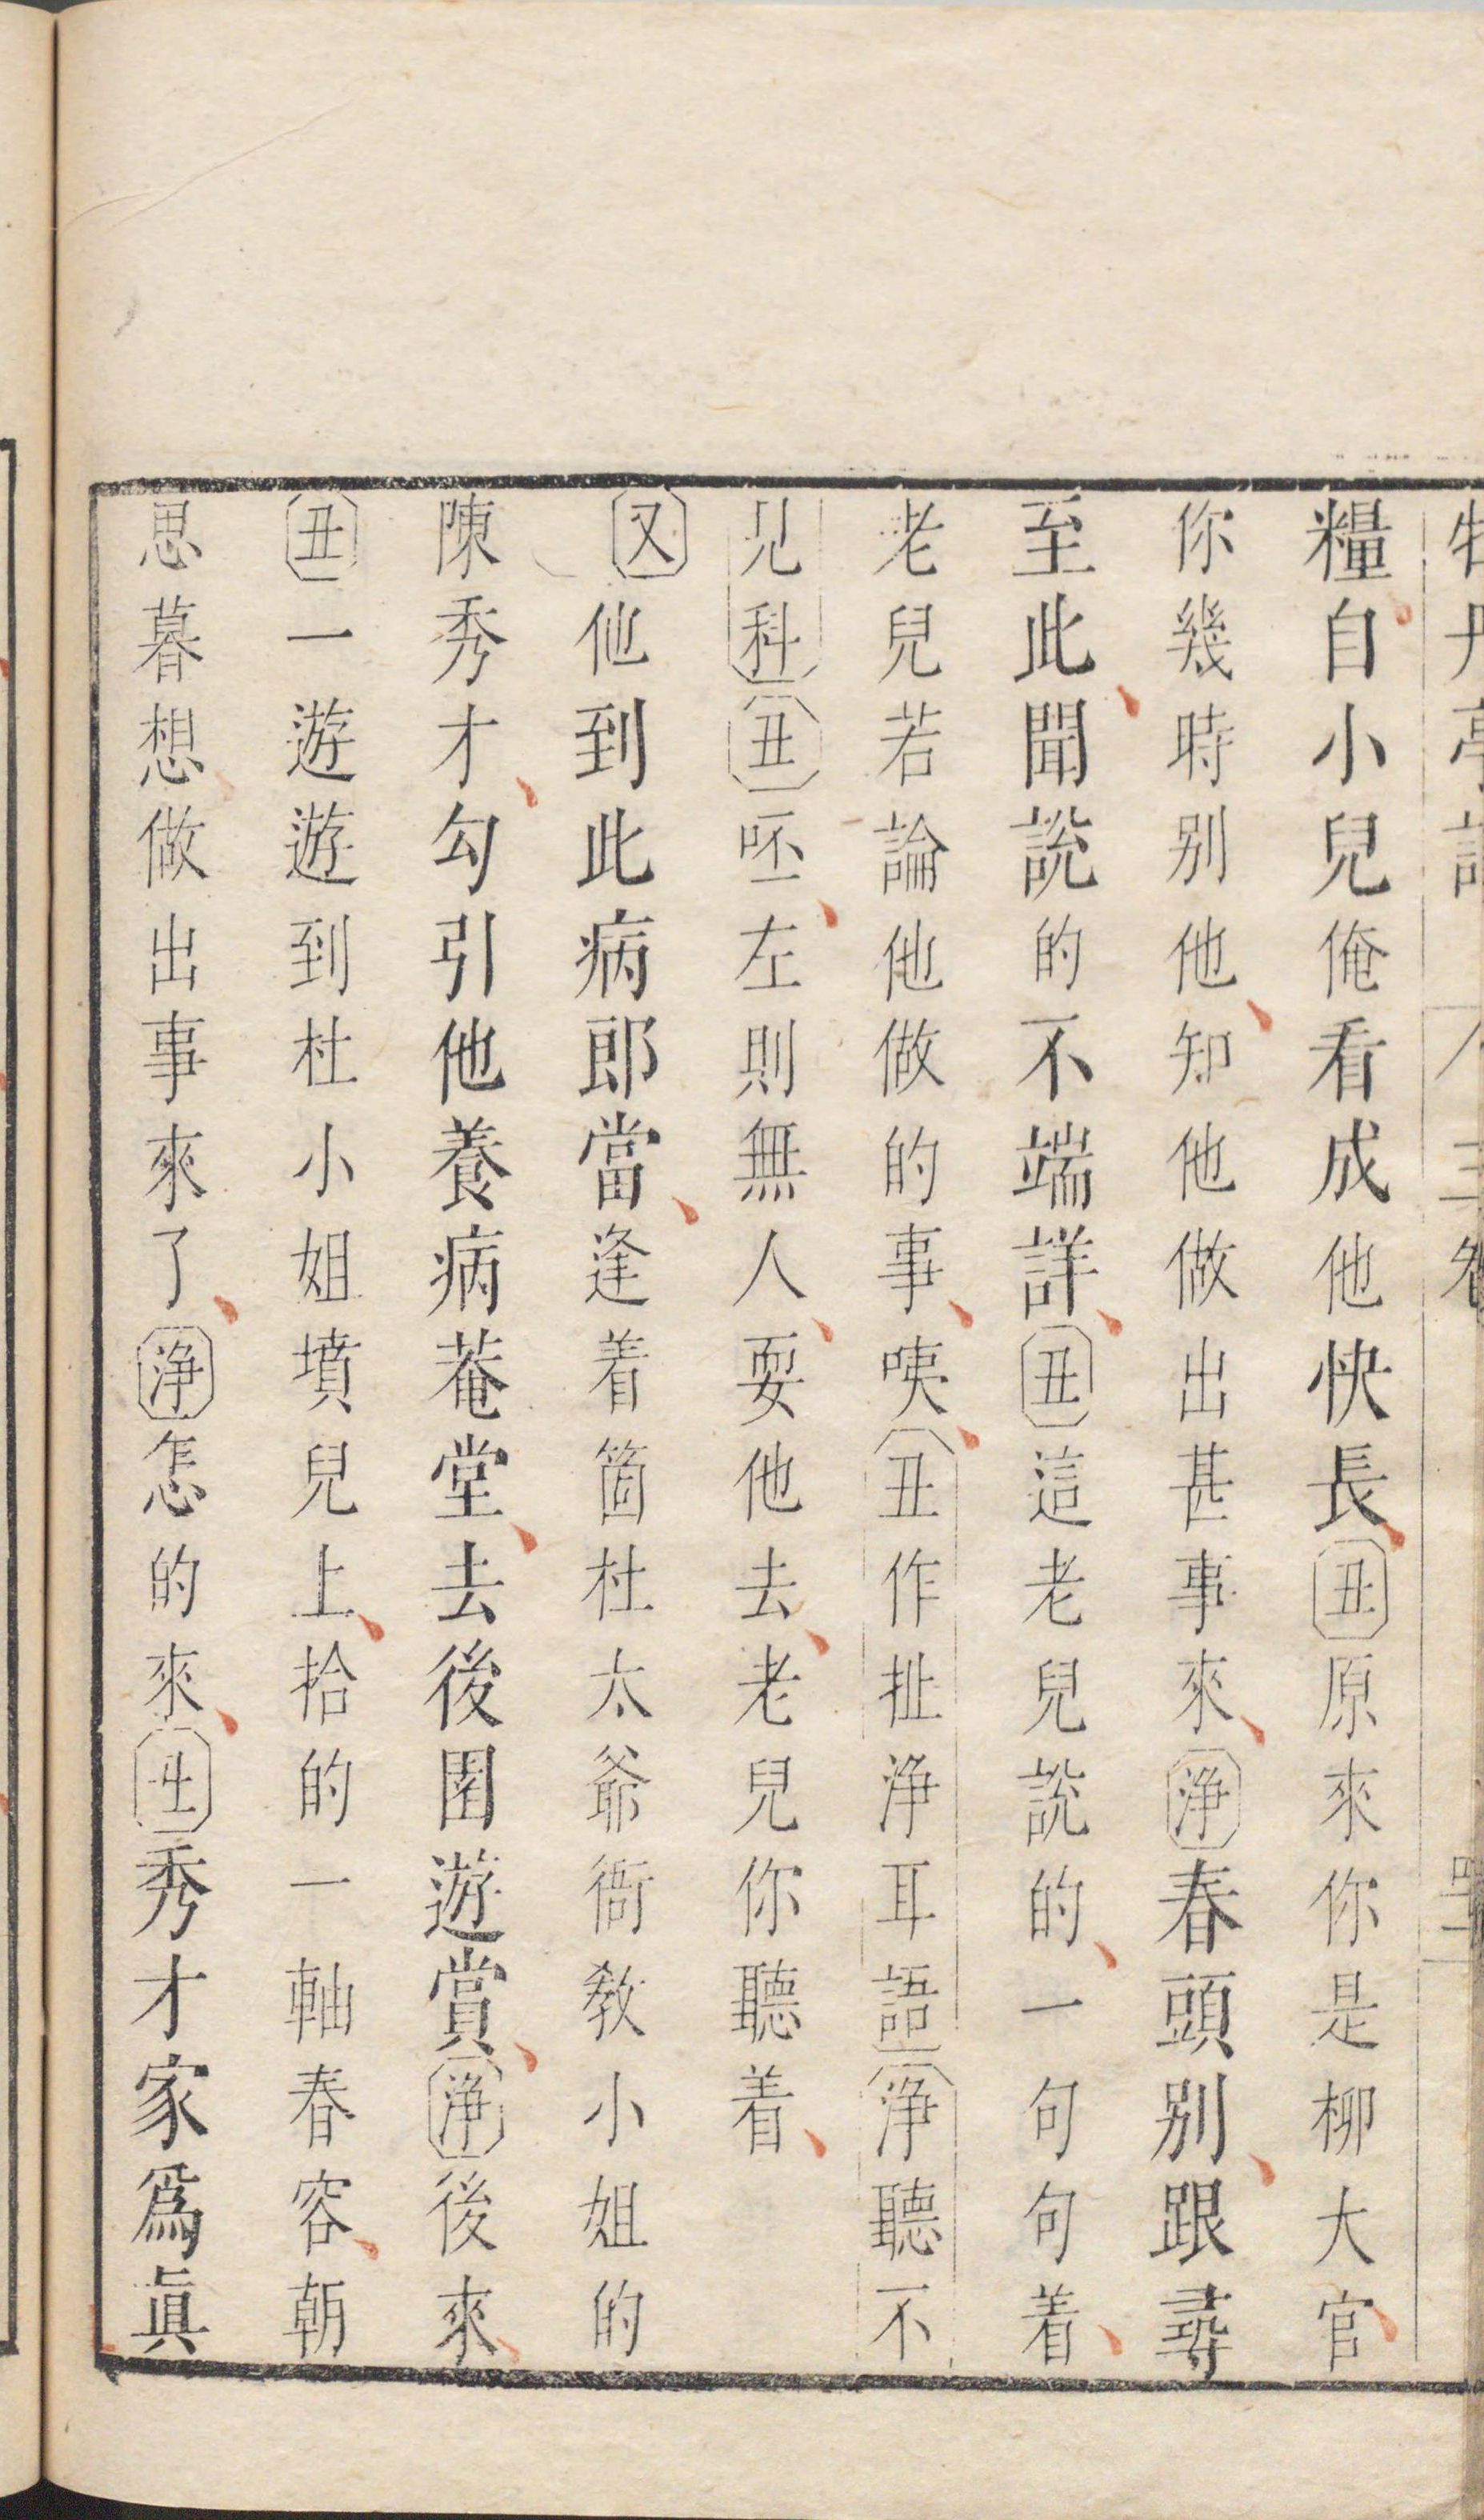 牡丹亭記 三卷
糧自小兒俺看成他快長丑原來你是柳大官
你幾時别他知他做出甚事來淨春頭别跟尋
至此聞說的不端詳丑這老兒說的一句句着
老兒若論他做的事咦丑作扯淨耳語淨聽不
見科丑呸左則無人耍他去老兒你聽着
又他到此病郎當逢着箇杜太爺衙敎小姐的
陳秀才勾引他養病菴堂去後園遊賞淨後來
丑一遊遊到杜小姐墳兒上拾的一軸春容朝
思暮想做出事來了淨怎的來生秀才家爲眞